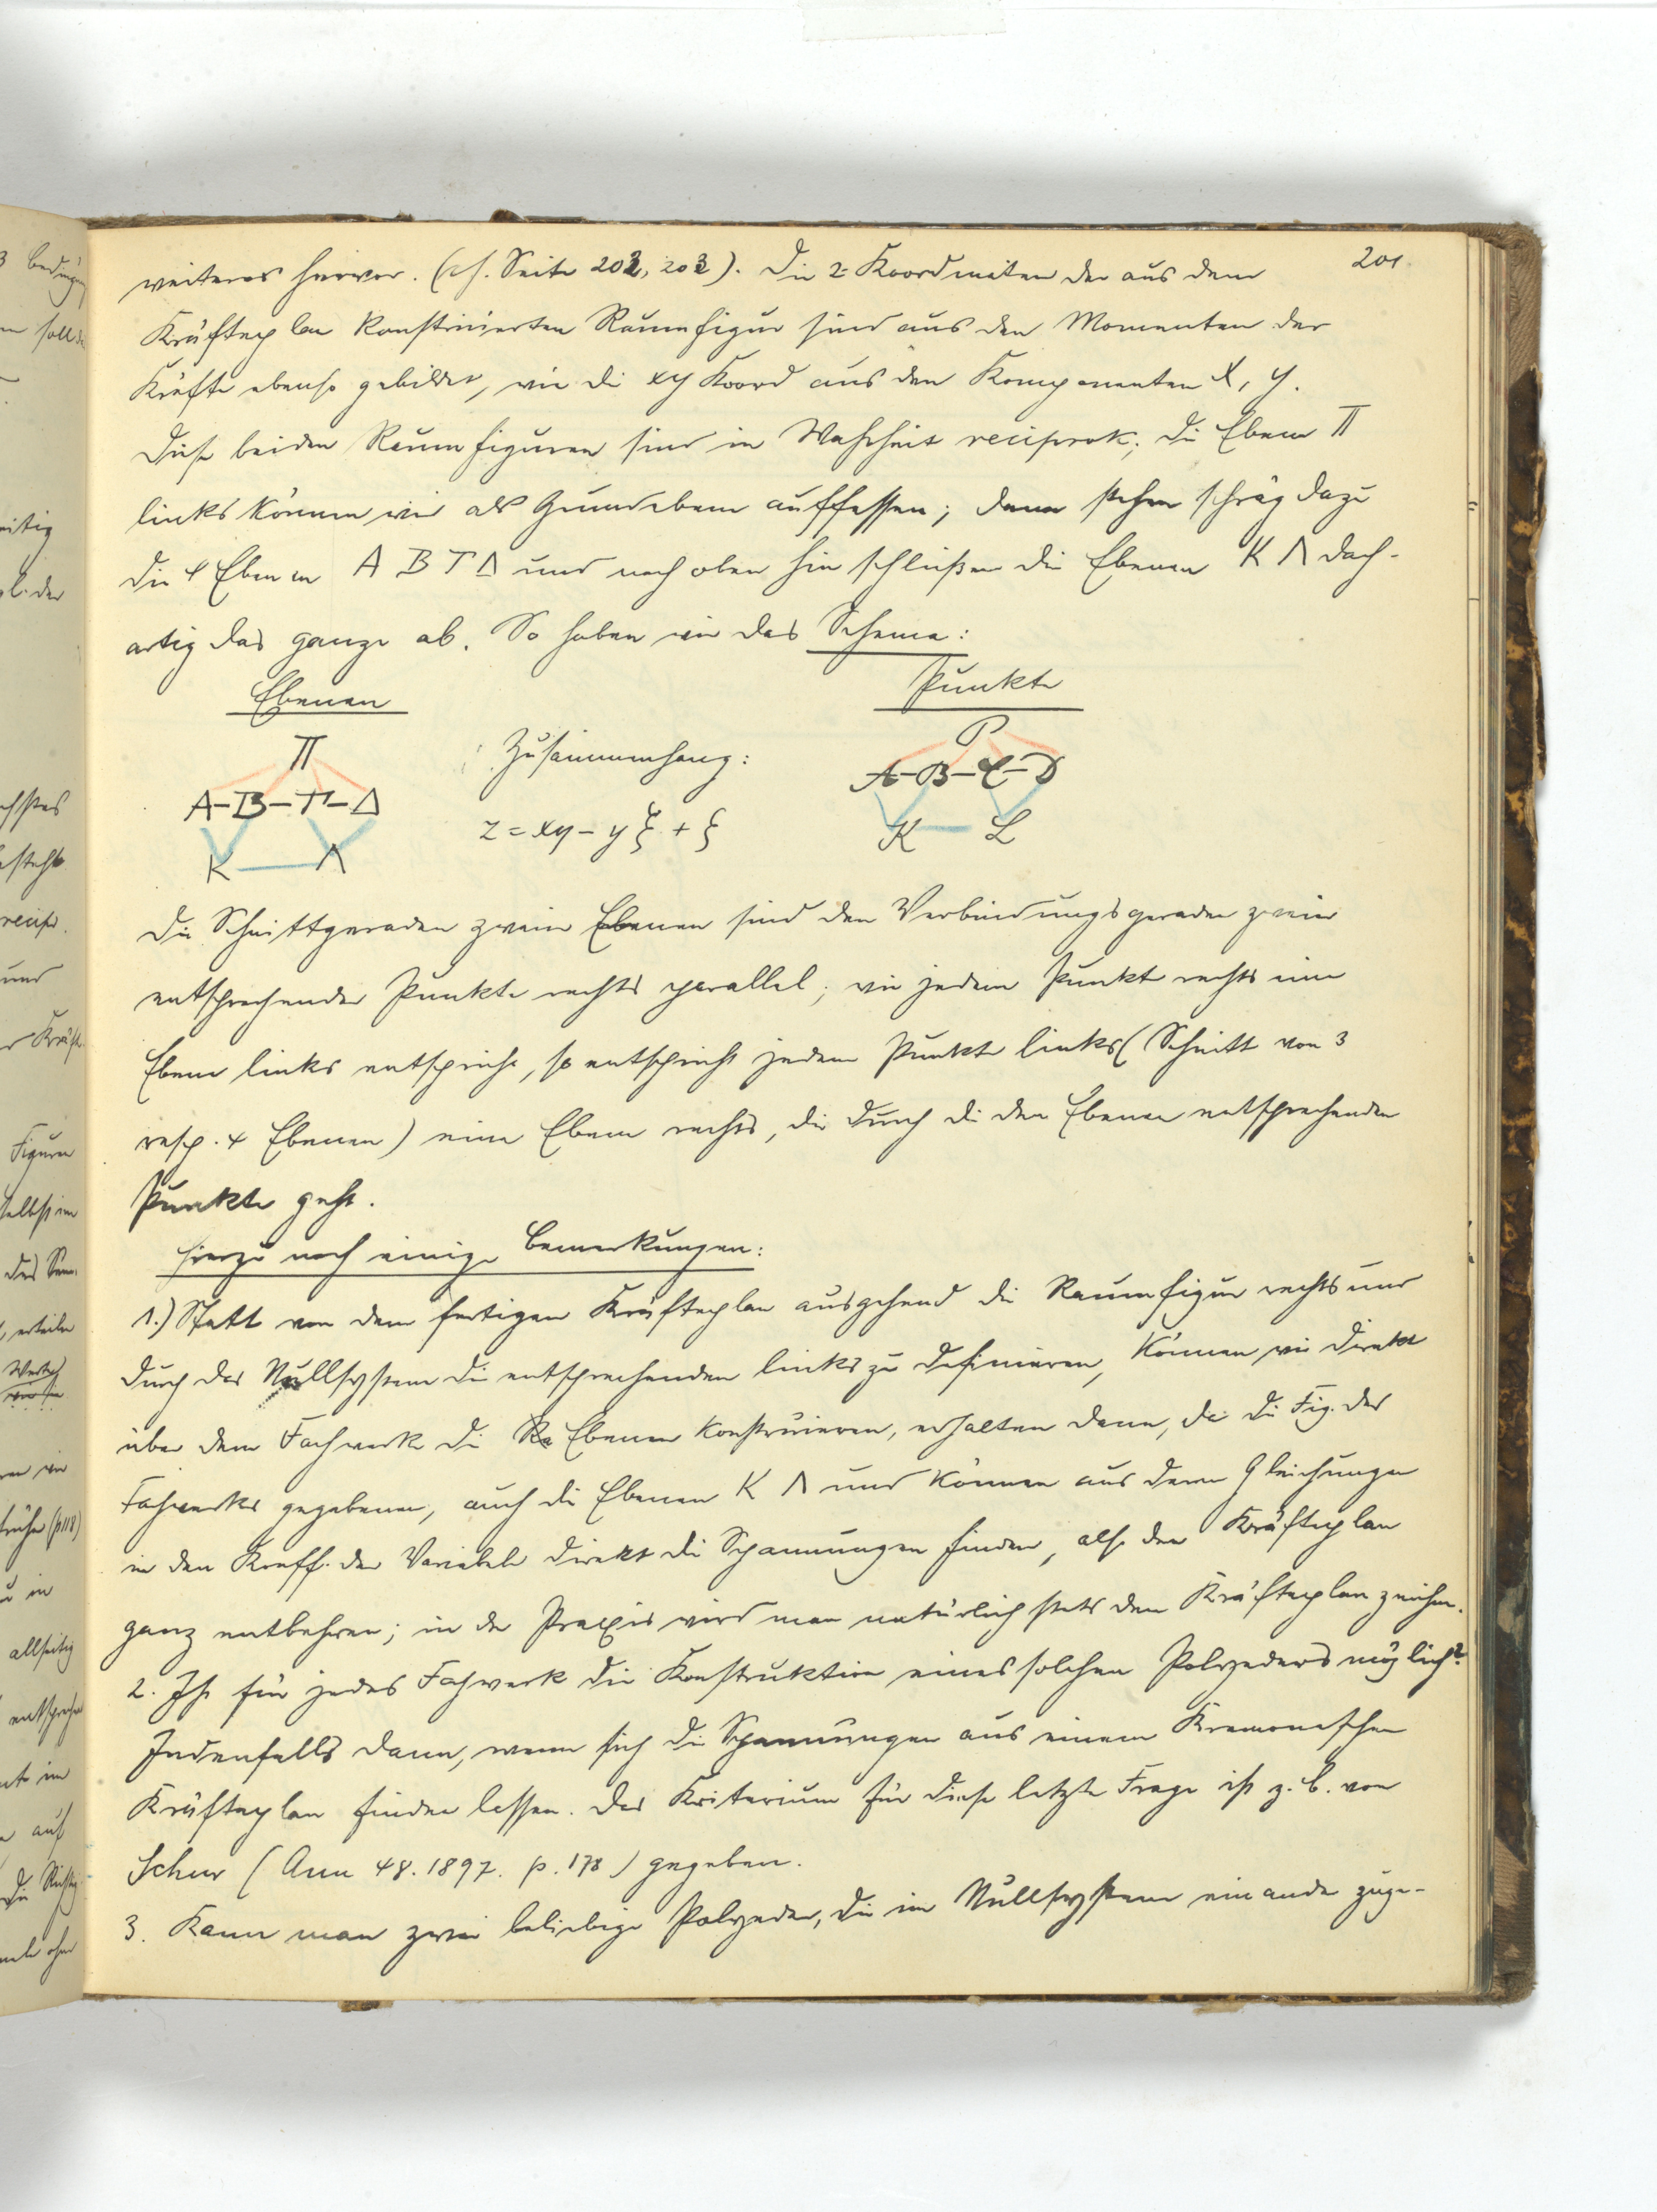 201.
weiteres hervor. (cf. Seite 202, 203). Die z Koordinaten der aus dem
Kräfteplan konstruierten Raumfigur sind aus den Momenten der
Kräfte ebenso gebildet, wie die xy Koord aus den Komponenten X, Y.
Diese beiden Raumfiguren sind in Wahrheit reciprok; die Ebene Π
links können wir als Grundebene auffassen; dann stehen schräg dazu
die 4 Ebenen A B Γ Δ und nach oben hin schließen die Ebenen K Λ dach-
artig das ganze ab. So haben wir das Schema:
Ebenen
Punkte
Π
A-B-Γ-Δ
K Λ
Zusammenhang:
z = xη - yξ + ζ
P
A-B-C-D
K L
Die Schnittgeraden zweier Ebenen sind den Verbindungsgeraden zweier
entsprechender Punkte rechts parallel; wie jedem Punkt rechts eine
Ebene links entspricht, so entspricht jedem Punkte links (Schnitt von 3
resp. 4 Ebenen) eine Ebene rechts, die durch die den Ebenen entsprechenden
Punkte geht.
Hierzu noch einige Bemerkungen:
1.) Statt von dem fertigen Kräfteplan ausgehend die Raumfigur rechts und
durch das Nullsystem die entsprechenden links zu definieren, können wir direkt
über dem Fachwerk die Ebenen konstruieren, erhalten dann, da die Fig. des
Fachwerks gegebenen, auch die Ebenen K Λ und können aus deren Gleichungen
in den Koeff. der Variabeln direkt die Spannungen finden, also den Kräfteplan
ganz entbehren; in der Praxis wird man natürlich stets den Kräfteplan zeichnen.
2. Ist für jedes Fachwerk die Konstruktion eines solchen Polyeders möglich?
Jedenfalls dann, wenn sich die Spannungen aus einem Kremonaschen
Kräfteplan finden lassen. Das Kriterium für diese letzte Frage ist z. B. von
Schur (Ann 48. 1897. p. 178) gegeben.
3. Kann man zwei beliebige Polyeder, die im Nullsystem einander zuge-